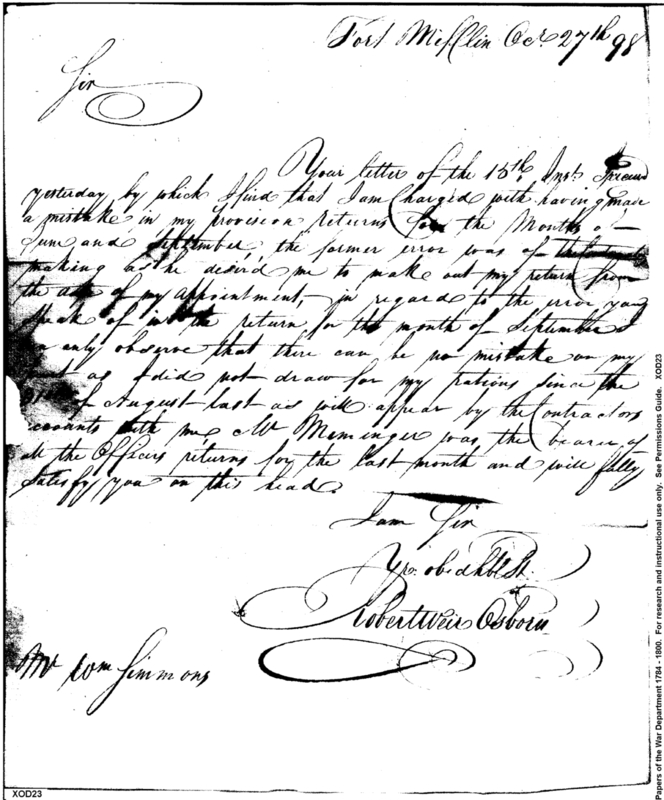 Fort Mifflin Octr. 27th 98
Sir
Your letter of the 15th Inst. I receivd
yesterday by which I find that I am Charged with having made
a mistake in my provision returns for the Months of
June and September, the former error was of
making as he desired me to make out my return from
the date of my appointment, in regard to the error you
speak of in the return for the month of September I
can only observe that there can be no mistake on my
part as I did not draw for my rations since the
31st of August last as will appear by the Contractors
accounts with me, Mr Meminger was the bearer of
all the Officers returns for the last month and will fully
satisfy you on this head.
I am Sir
Yr. obid hble St.
Robert Weir Osborn
Mr Wm Simmons
XOD23
Papers of the War Department 1784 - 1800. For research and instructional use only. See Permissions Guide. XOD23